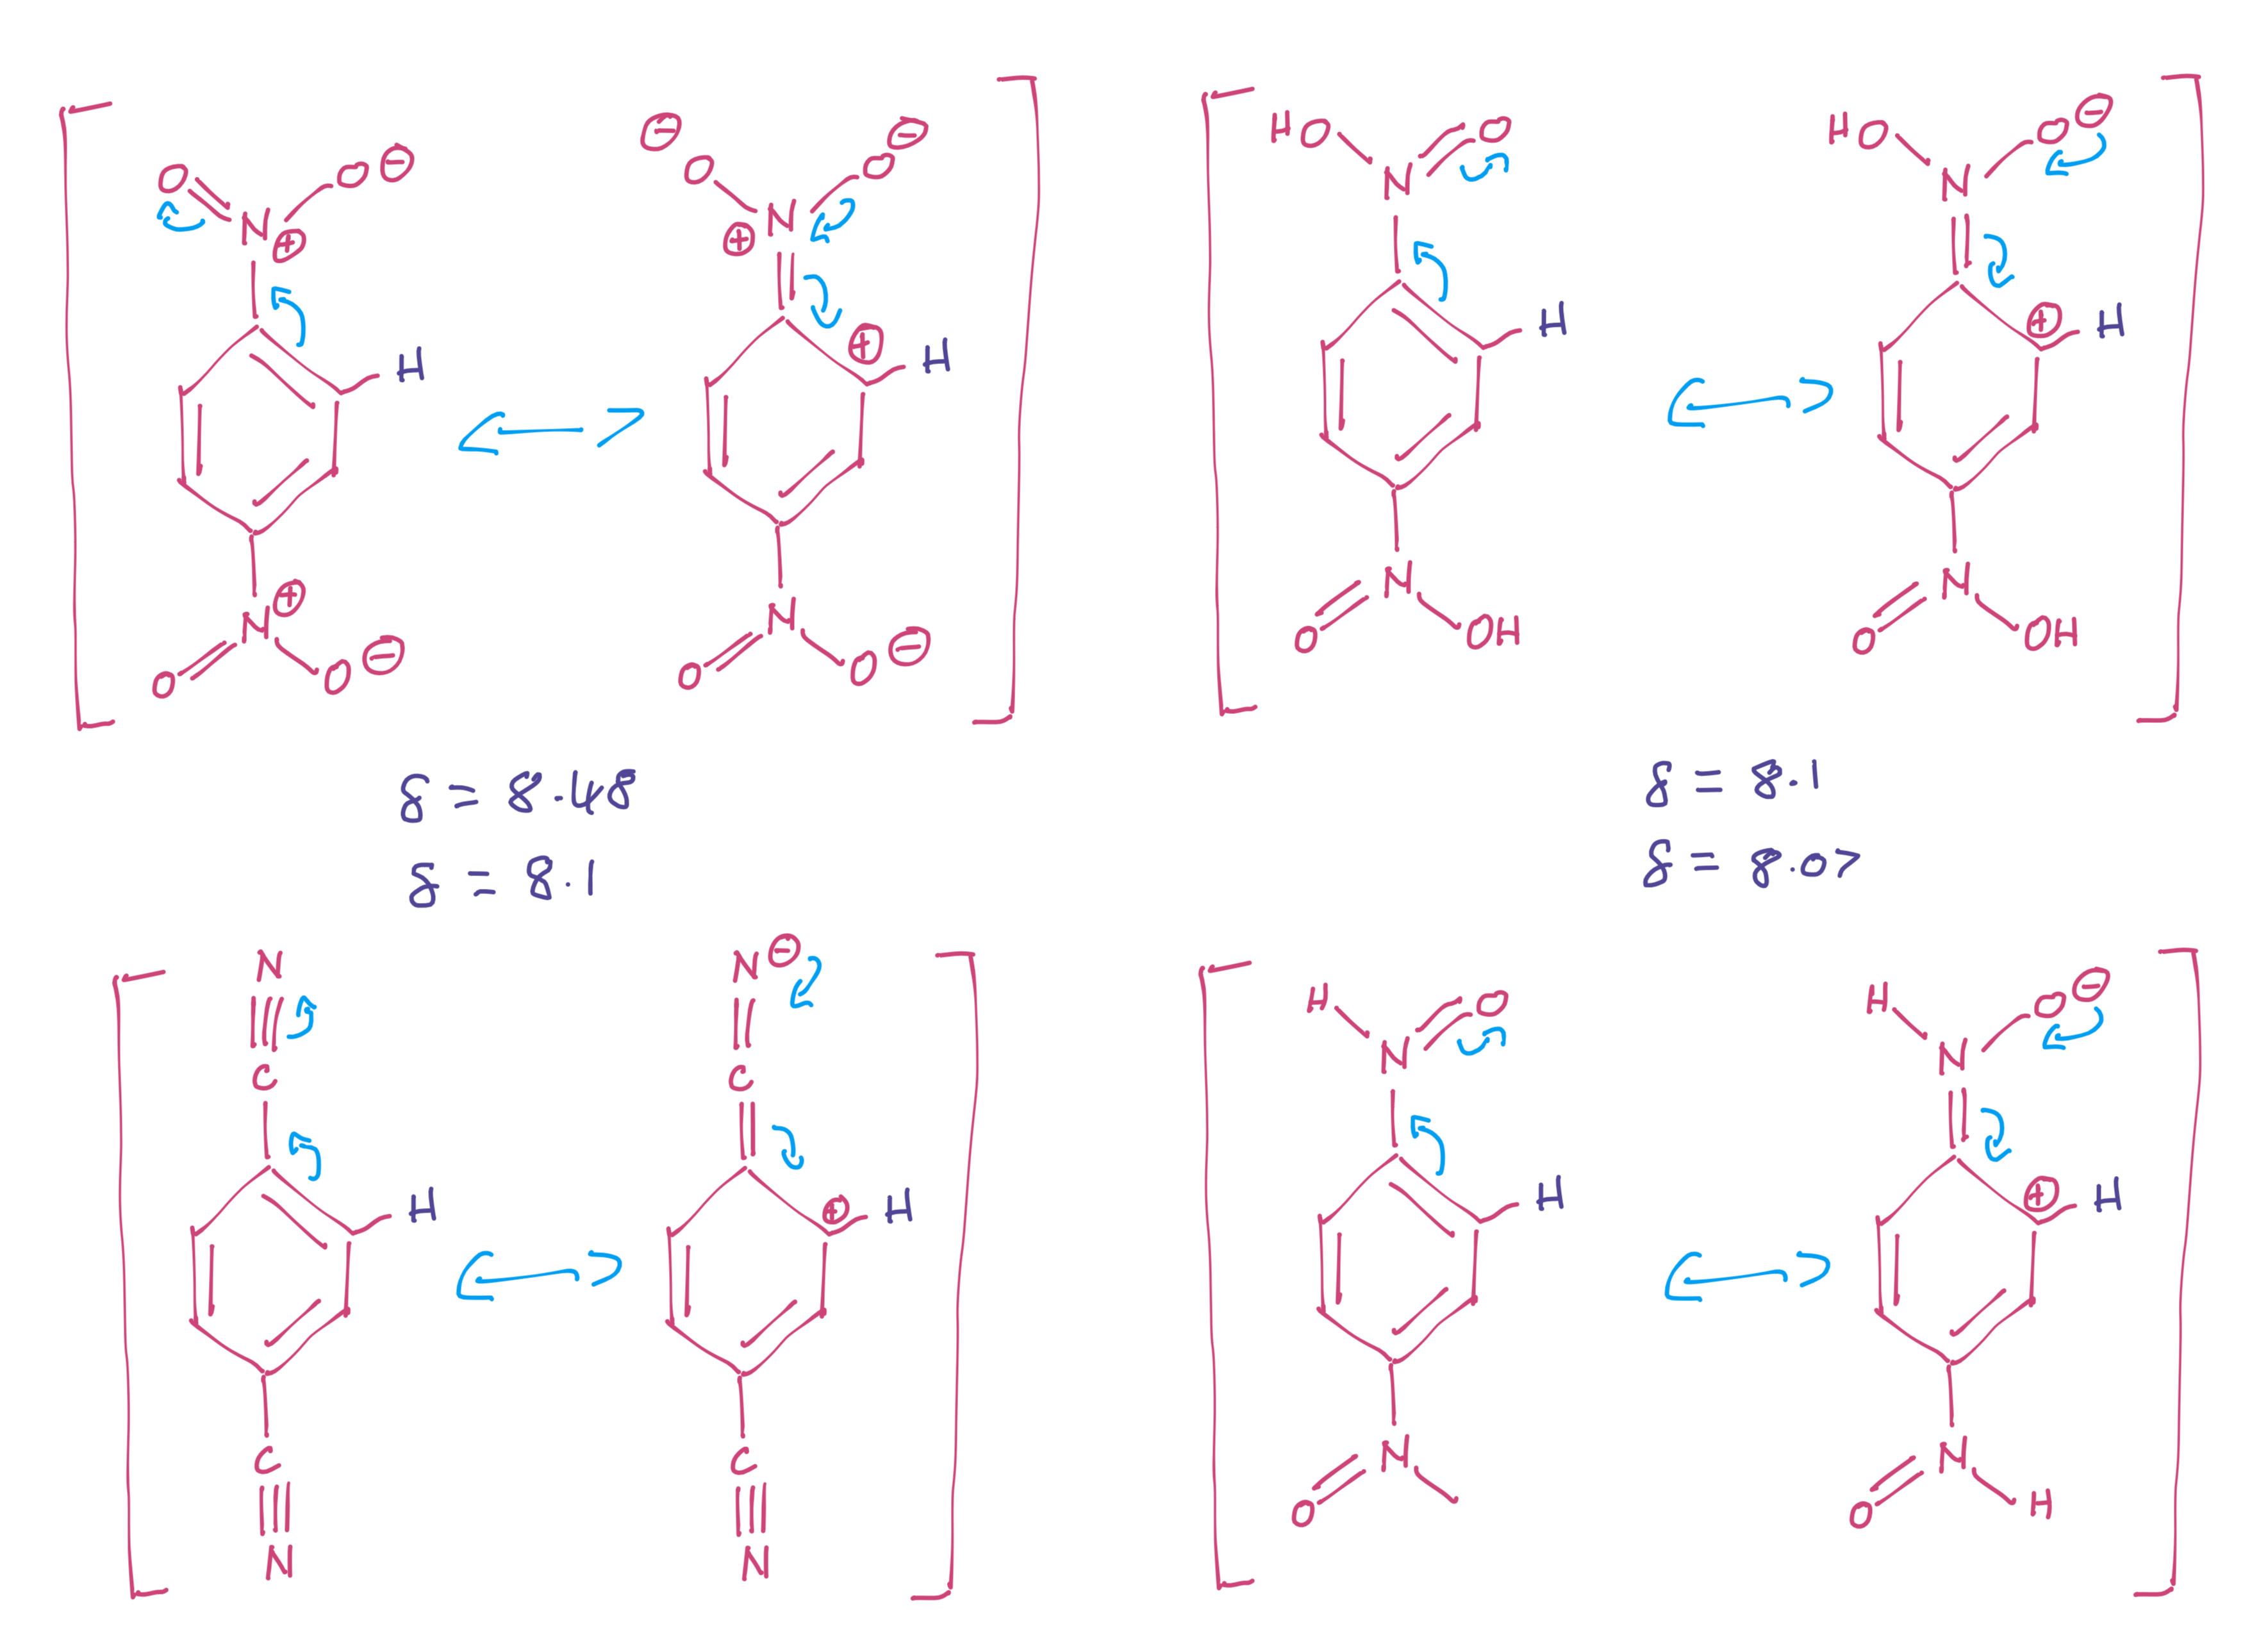 O O ⊖
N ⊕
H
N ⊕
O O ⊖
⊖ O O ⊖
⊕ N
⊕ H
N
O O ⊖
HO O
N
H
N
O OH
HO O ⊖
N
⊕ H
N
O OH
δ = 8.48
δ = 8.1
δ = 8.1
δ = 8.07
N
C
H
C
N
N ⊖
C
⊕ H
C
N
H O
N
H
N
O
H O ⊖
N
⊕ H
N
O H